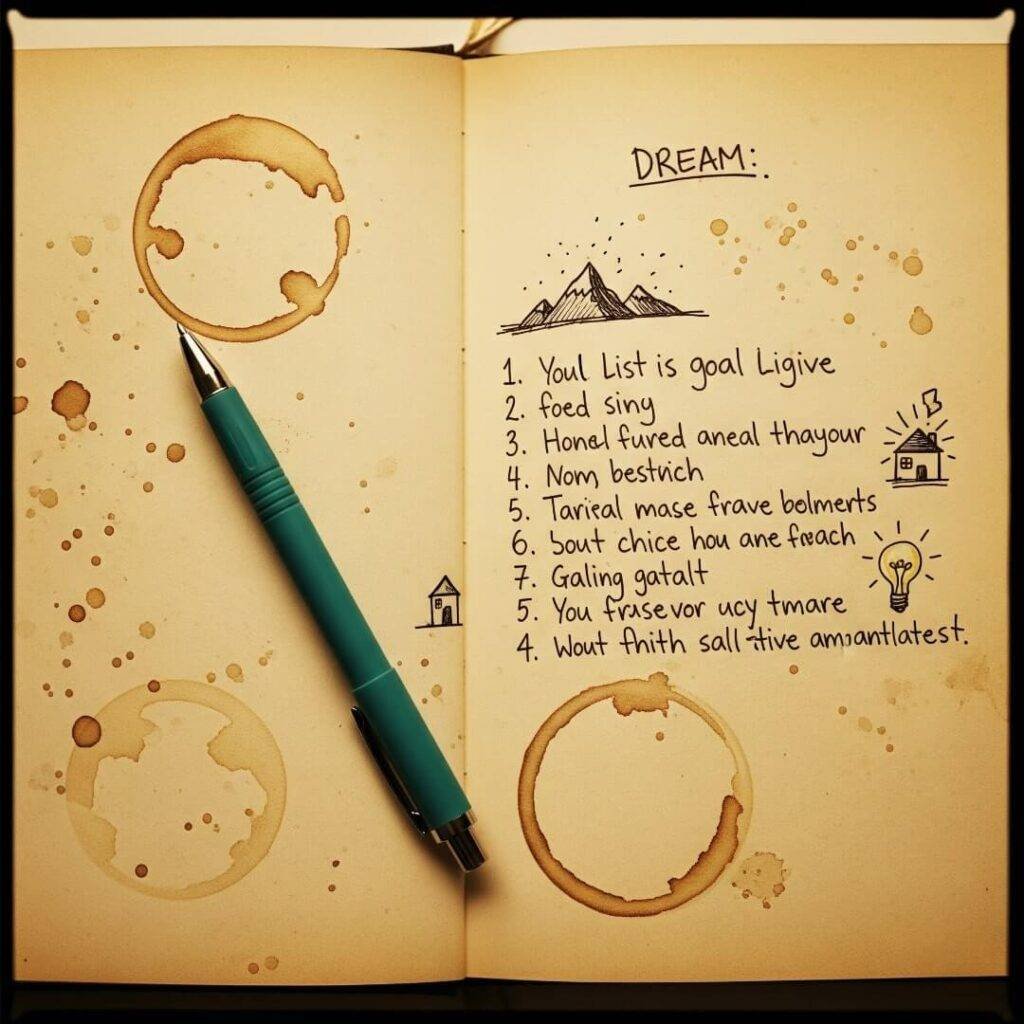 DREAM:
1. Youl List is goal Ligive
2. foed siny
3. Honel fured aneal thayour
4. Nom bestvich
5. Tarieal mase frave bolmerts
6. bout chice hou ane freach
7. Galing gatalt
5. You frusevor ucy tmare
4. Wout fhith sall tive amantlatest.